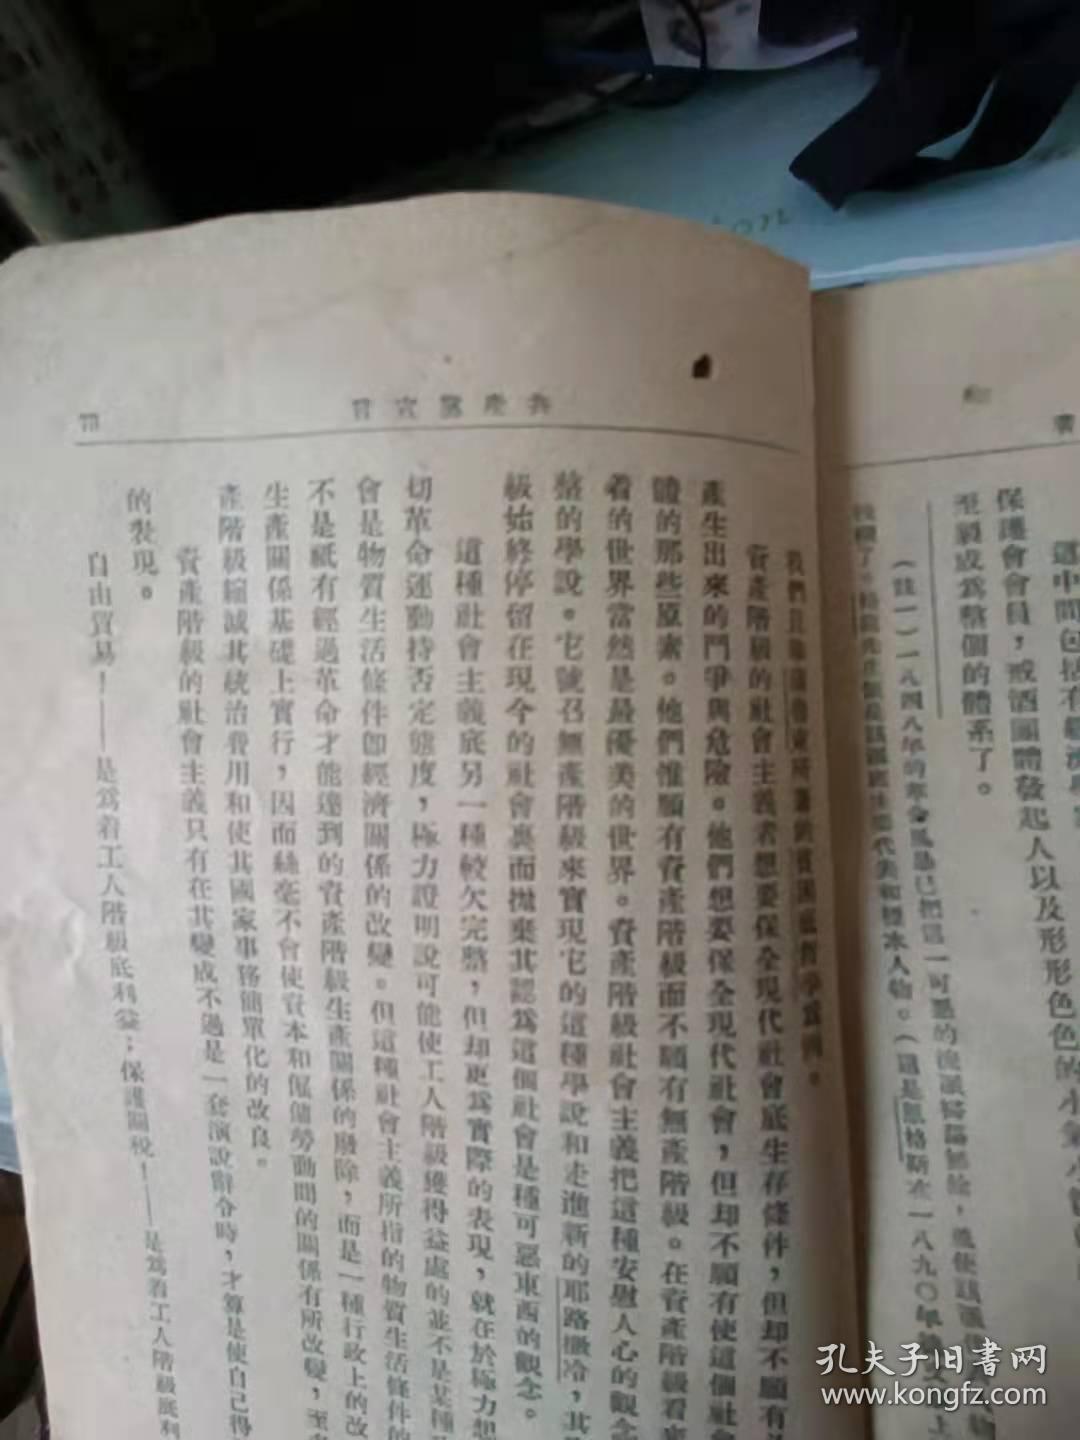 書
這中間包括有經濟學
保護會會員，戒酒團體發起人以及形形色色的小氣小
至製成為整個的體系了。
（註一）一八四八年的革命風暴已把這一可惡的流派掃蕩無餘，並使該派
代表和標本人物。（這是恩格斯在一八九〇年德文上
共產黨宣言
我們且舉蒲魯東所著的貧困底哲學為例。
資產階級的社會主義者想要保全現代社會底生存條件，但却不願有
產生出來的鬥爭與危險。他們想要保全現代社會，但却不願有使這個社會
體的那些原素。他們惟願有資產階級而不願有無產階級。在資產階級看來
着的世界當然是最優美的世界。資產階級社會主義把這種安慰人心的觀念
整的學說。它號召無產階級來實現它的這種學說和走進新的耶路撒冷，其
級始終停留在現今的社會裏面拋棄其認為這個社會是種可惡東西的觀念。
這種社會主義底另一種較欠完整，但却更為實際的表現，就在於極力想
切革命運動持否定態度，極力證明說可能使工人階級獲得益處的並不是某種
會是物質生活條件卽經濟關係的改變。但這種社會主義所指的物質生活條件的
不是祗有經過革命才能達到的資產階級生產關係的廢除，而是一種行政上的改
生產關係基礎上實行，因而絲毫不會使資本和僱傭勞動間的關係有所改變，至多
產階級縮減其統治費用和使其國家事務簡單化的改良。
資產階級的社會主義只有在其變成不過是一套演說辭令時，才算是使自己得
的表現。
自由貿易！——是為着工人階級底利益；保護關稅！——是為着工人階級底利
孔夫子旧書网
www.kongfz.com